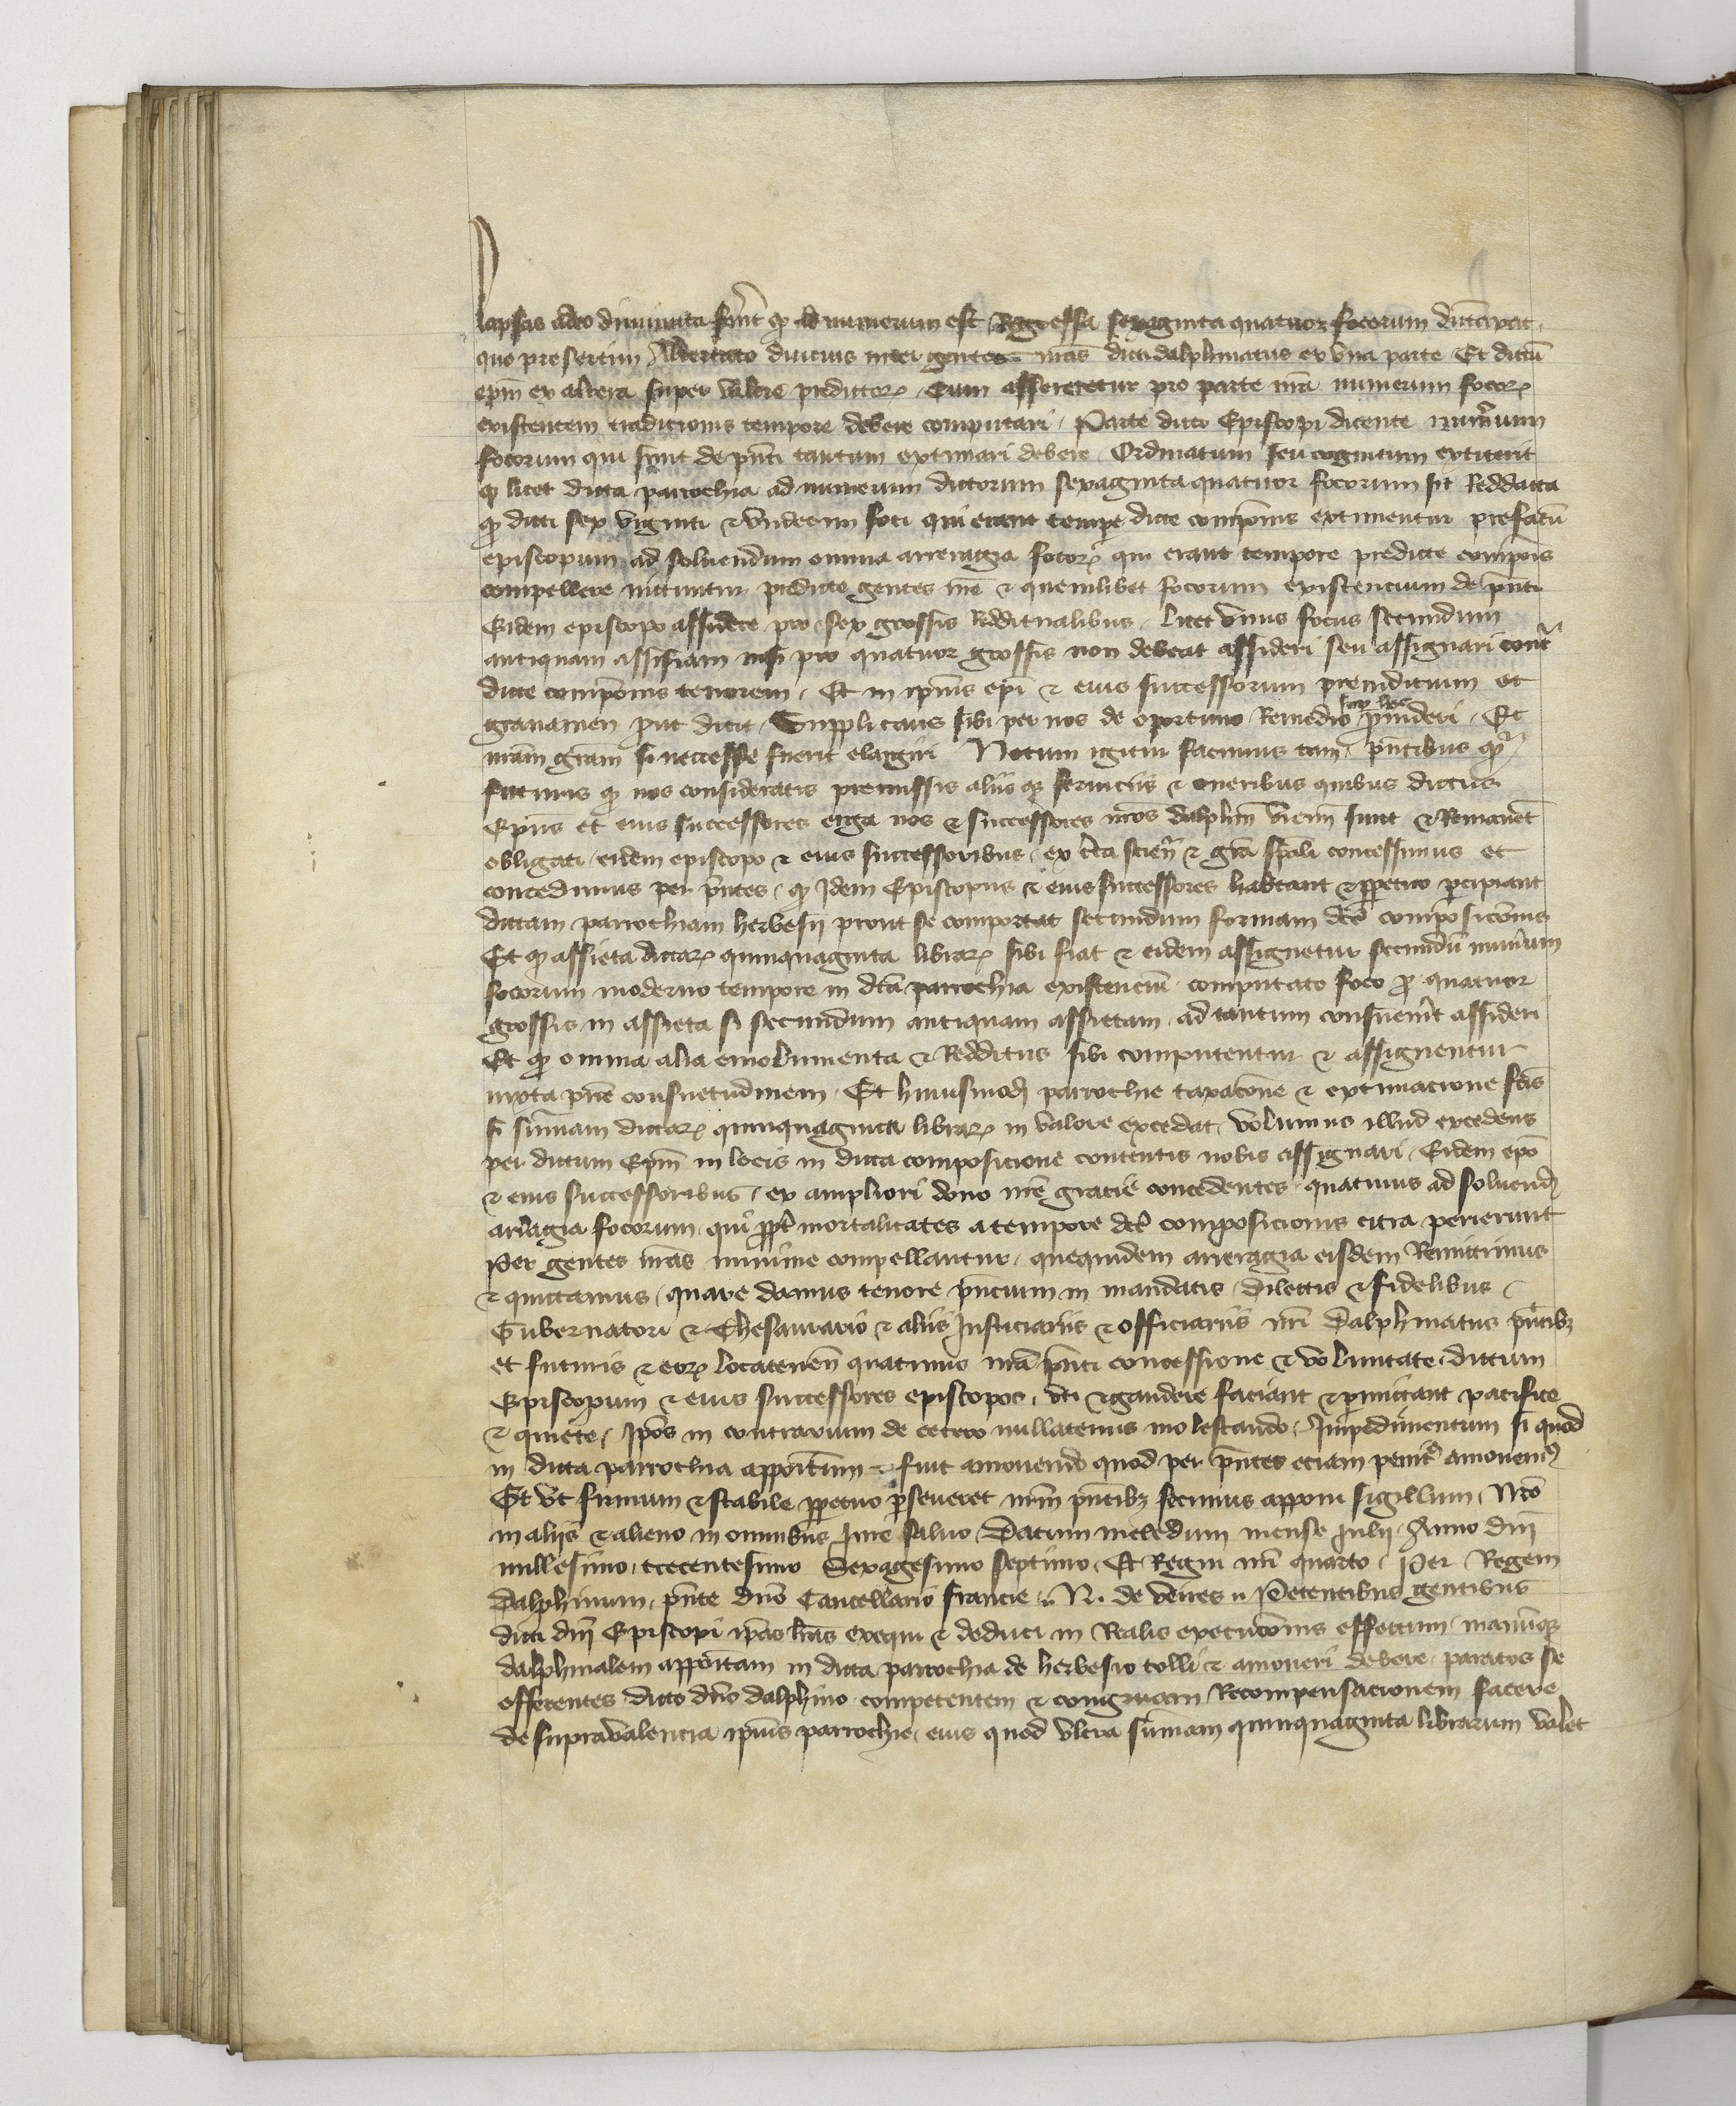 lapsis adeo diminuta sunt qͫ ad numerum est Regressa sexaginta quatuor focorum dūtaxat
quo presertim Altercato diucius inter gentes nr̄as dicti dalphinatus ex vna parte Et dictū
ep̄m ex altera super valore predictoꝝ Cum assereretur pro parte nr̄a numerum focoꝝ
existentem tradicionis tempore debere computari / Parte dicti Episcopi dicente num̄um
focorum qui sunt de pn̄ti tantum extimari debere Ordinatum seu cognitum extiterit
ꝙ licet dicta parrochia ad numerum dictorum sexaginta quatuor focorum sit Reddacta
ꝙ dicti sex viginti & vndecim foci qui erant tempe dicte compōnis extimentur prefatū
episcopum ad soluendum omnia arreragia focoꝝ qui erant tempore predicte compōis
compellere nituntur predicte gentes nr̄e & quemlibet focorum existencium de pn̄ti
Eidem episcopo assidere pro sex grossis Redditualibus / licet vnus focus secundum
antiquam assisiam nisi pro quatuor grossis non debeat assideri seu assignari contᵃ
dicte compōnis tenorem / Et in ip̄ius ep̄i & eius successorum preiudicium et
grauamen put dicit / Supplicans sibi per nos de oportuno Remedio sup hoc p̄uideri / Et
nr̄am grām si neccesse fuerit elargiri Notum igitur facimus tam pn̄tibus ꝙ
futuris ꝙ nos consideratis premissis aliisqꝫ seruiciis & oneribus quibus dictus
Ep̄us et eius successores erga nos & successores nr̄os dalphin̄ vienn̄ sunt & Remanēt
obligati / eidem episcopo & eius successoribus / ex c̄ta scien̄ & grā sp̄ali concessimus et
concedimus per pn̄tes / ꝙ Idem Episcopus & eius successores habeant & ꝑpetuo ꝑcipiant
dictam parrochiam herbesii prout se comportat secundum formam dc̄e composicōnis
Et ꝙ assieta dictaꝝ quinquaginta libraꝝ sibi fiat & eidem assignetur secundū num̄um
focorum moderno tempore in dc̄a parrochia existenciū computato foco ꝓ quatuor
grossis in assieta si secundum antiquam assietam ad tantum consueuit assideri
Et ꝙ omnia alia emolumenta & Redditus sibi computentur & assignentur
iuxta pn̄e consuetudinem / Et huiusmodi parrochie taxacōne & extimacione fc̄is
si sūmam dictaꝝ quinquaginta libraꝝ in valore excedat / volumus illud excedens
per dictum Ep̄m in locis in dicta composicione contentis nobis assignari / Eidem ep̄o
& eius successoribus / ex ampliori dono nr̄e gracie concedentes / quatinus ad soluend
arr̄agia focorum / qui ꝓpt mortalitates a tempore dc̄e composicionis citra perierunt
Per gentes nr̄as minime compellantur / quequidem arreragia eisdem Remittimus
& quittamus / quare damus tenore pn̄cium in mandatis / Dilectis & fidelibus /
Gubernatori & Thesaurario & aliis Justiciariis & officiariis nr̄i Dalphinatus pn̄tibꝫ
et futuris & eoꝝ locatenen̄ quatinus nr̄a pn̄ti concessione & voluntate dictum
Episcopum & eius successores episcopos / vti & gaudere faciant & ꝑmittant pacifice
& quiete / Ip̄os in contrarium de cetero nullatenus molestando / Impedimentum si quod
in dicta parrochia appoitum & fuit amouendo quod per pn̄tes eciam penitᵒ amouem
Et vt firmum & stabile ꝑpetuo ꝑseueret nr̄m pn̄tibꝫ fecimus apponi sigillum / Nr̄o
in aliis & alieno in omnibus Jure saluo / Datum meledum mense Julii Anno dn̄i
millesimo trecentesimo Sexagesimo septimo / Et Regni nr̄i quarto / Per Regem
Dalphinum / pn̄te dn̄o Cancellario francie / N. de veires / Petentibus gentibus
dicti dn̄i Episcopi ip̄as lr̄as exequi & deduci in Realis execucōnis effectum / manūqꝫ
dalphinalem appoitam in dicta parrochia de herbesio tolli & amoueri debere / paratos se
offerentes dicto dn̄o dalphino competentem & congruam Recompensacionem facere
de supraualencia ip̄ius parrochie / eius quod vltra sūmam quinquaginta librarum valet